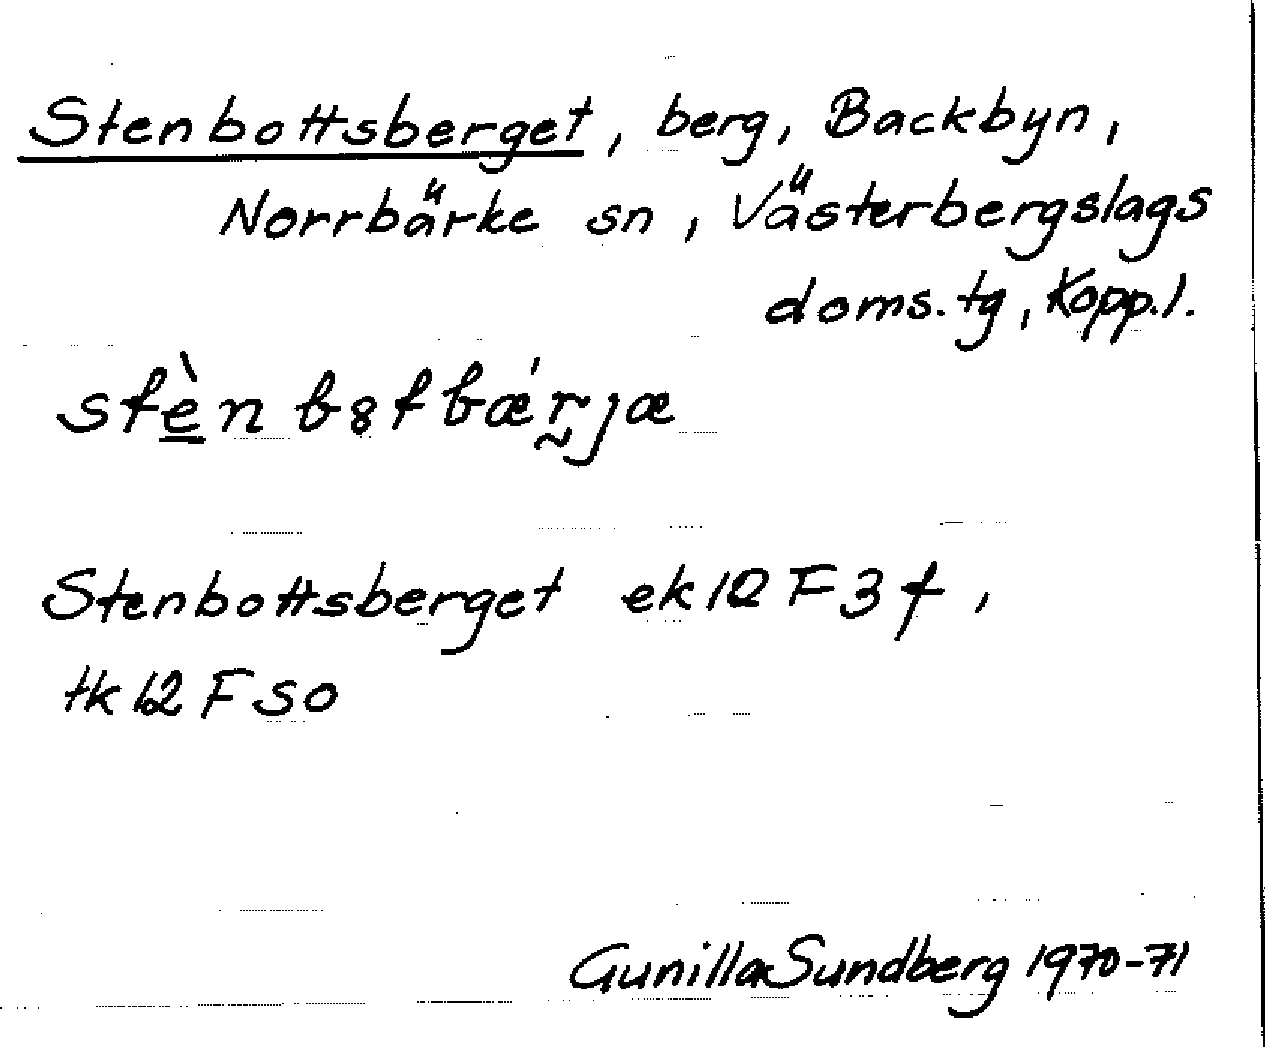 Stenbottsberget, berg, Backbyn,
Norrbärke sn, Västerbergslags
doms.tg, Kopp.l.
stè̲n b8t bǽr̰jæ
Stenbottsberget ek 12 F 3 f,
tk 12 F SO
Gunilla Sundberg 1970-71